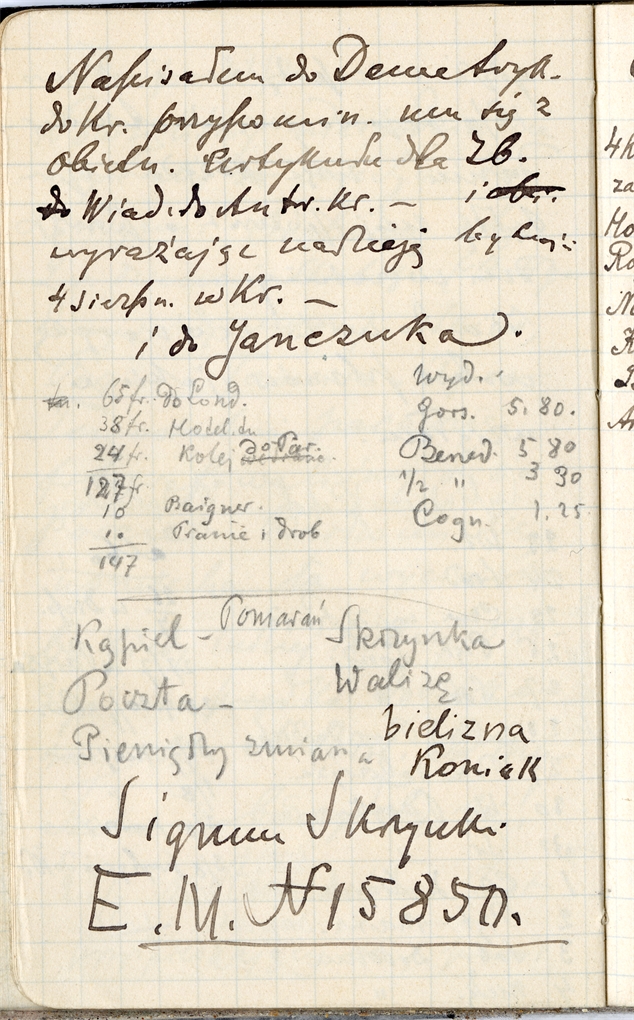 Napisałem do Demetryk.
do Kr. przypomin. mu się z
obietn. Artykułu dla Zb.
do Wiad. do Antr. Kr. – i
wyrażając nadzieję
4 sierpn. w Kr. –
i do Janczuka).
65 fr. do Lond.
38 fr. Hotel tu
24 fr. Kolej do Par.
127 fr.
10 Baigner.
10 Pranie i drob
147
wyd.
Gors. 5.80.
Bened. 5 80
1/2 " 3 90
Cogn. 1.25
Kąpiel – Pomarań
Poczta –
Pieniędzy zmiana
Skrzynka
Walizę.
bielizna
Koniak
Signum Skrzynki
E. M. N 15850.
4K
za
Ho